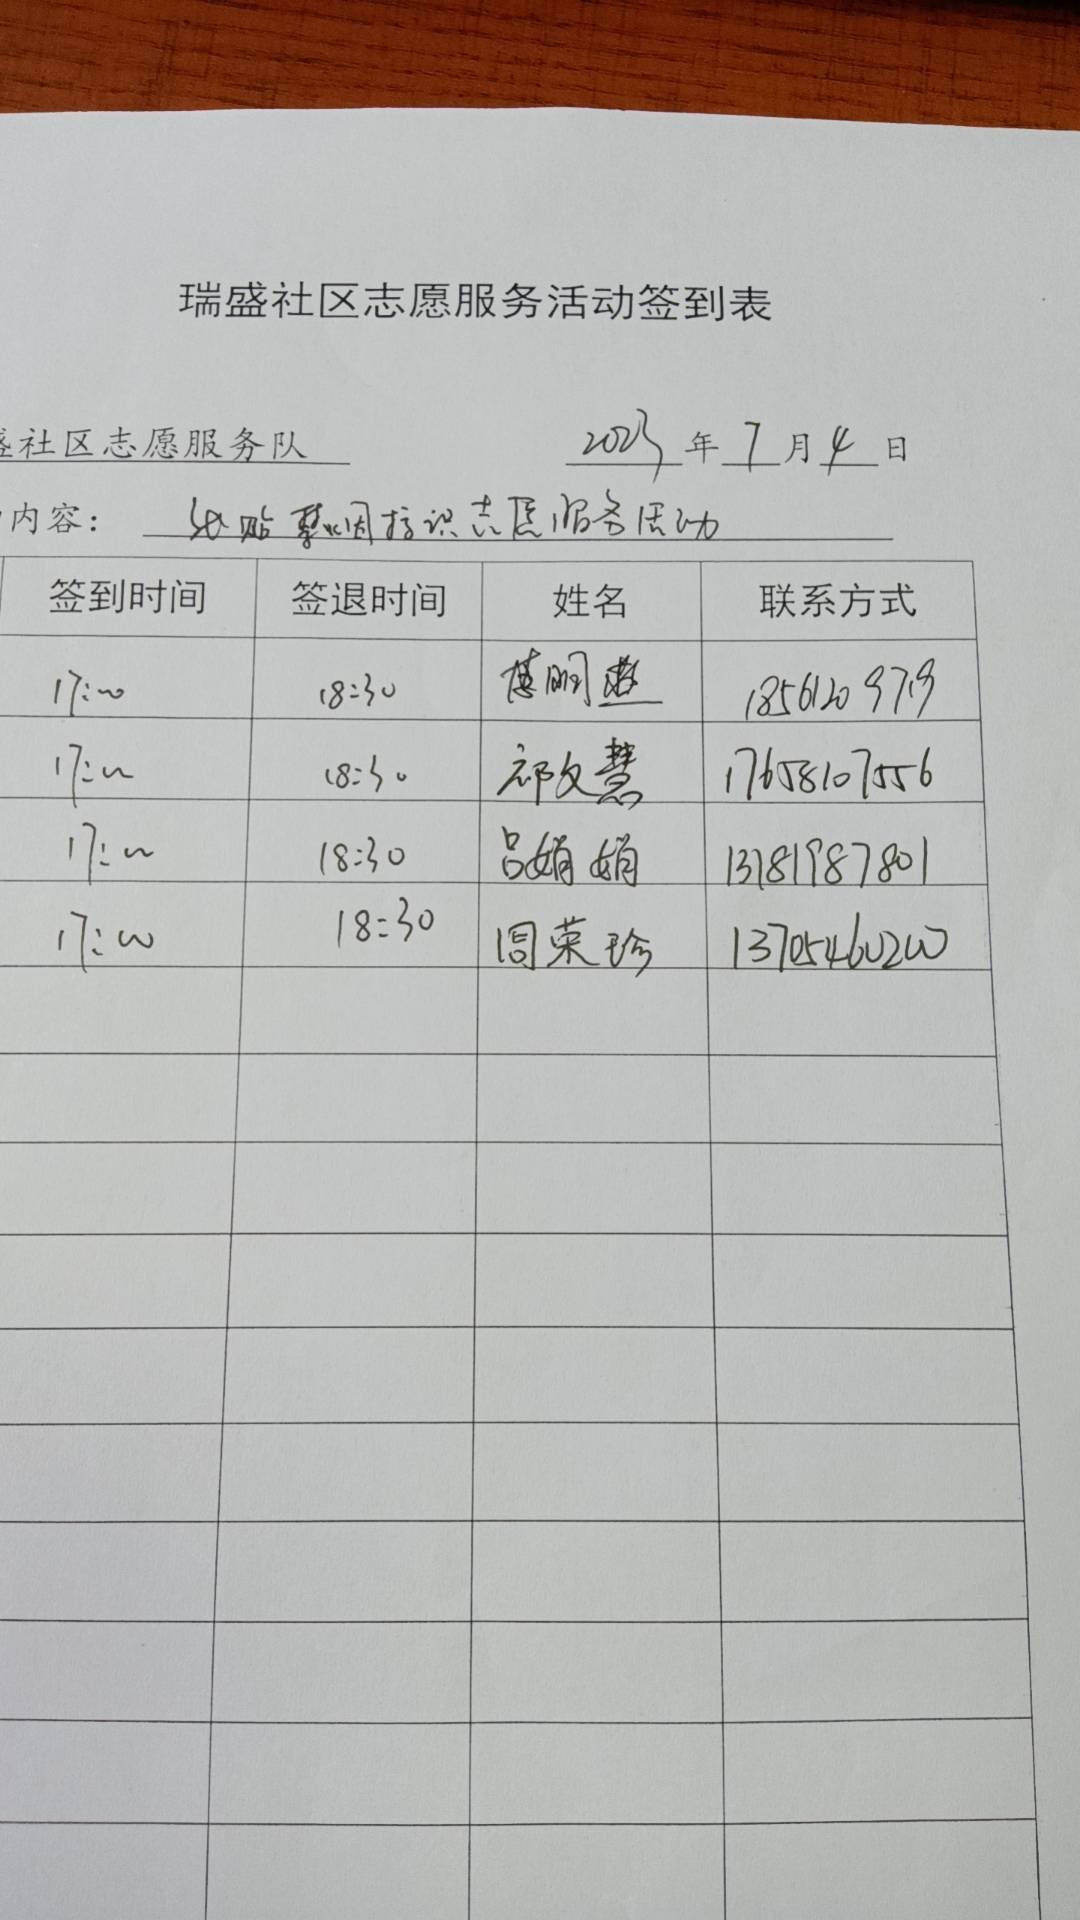 瑞盛社区志愿服务活动签到表
盛社区志愿服务队 2023年7月4日
内容： 张贴禁烟标识志愿服务活动
签到时间 签退时间 姓名 联系方式
17:00 18:30 18561209719
17:00 18:30 祁文慧 17658107556
17:00 18:30 吕娟娟 13181987801
17:00 18:30 周荣珍 13705460200